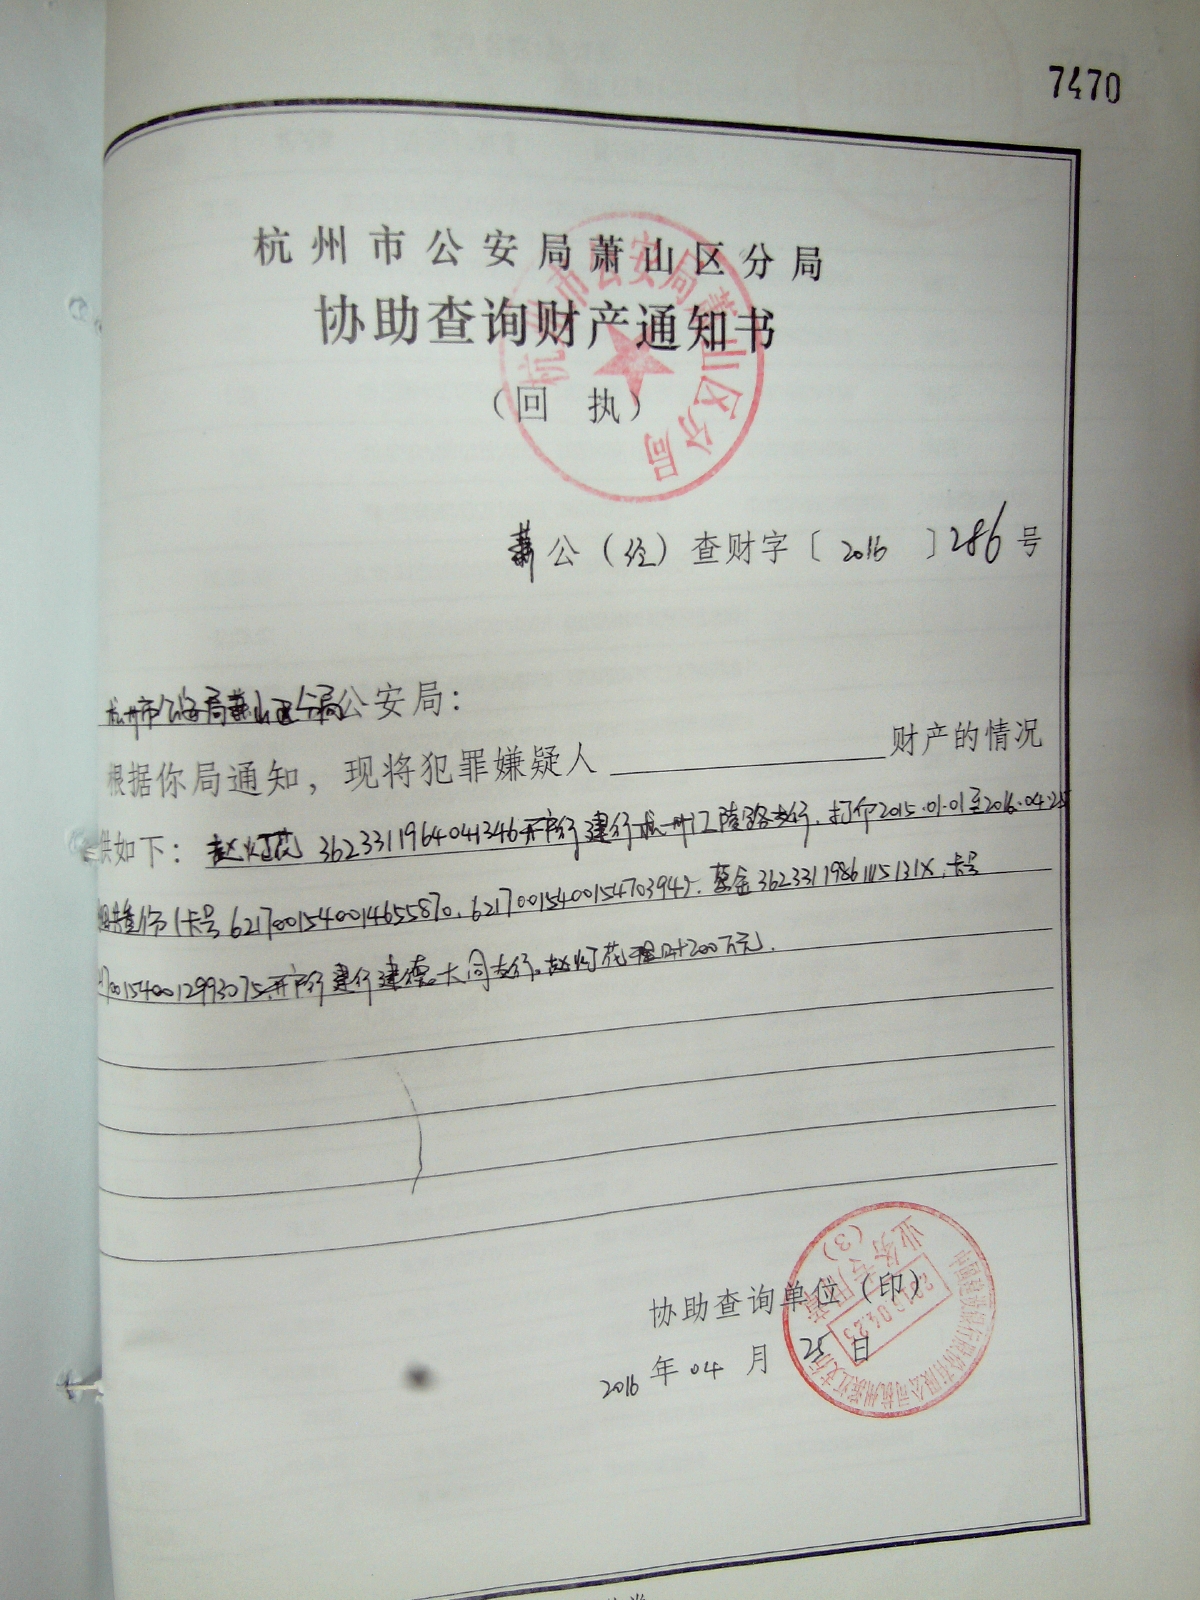 7470
杭州市公安局萧山区分局
协助查询财产通知书
（回 执）
杭州市公安局萧山区分局
萧公（经）查财字〔2016〕286号
杭州市公安局萧山区分局公安局：
根据你局通知，现将犯罪嫌疑人 财产的情况
供如下：赵灯花 362331196404 1346开户行建行杭州江陵路支行，打印2015.01.01至2016.04.25
（卡号6217001540014655870、621700154001547039 ），蔡金36233119861115131X，卡号
7001540012993075，开户行建行建德大同支行。赵灯花 200万元.
协助查询单位（印）
2016年04月25日
中国建设银行股份有限公司杭州滨江支行
业务专用章
（3）